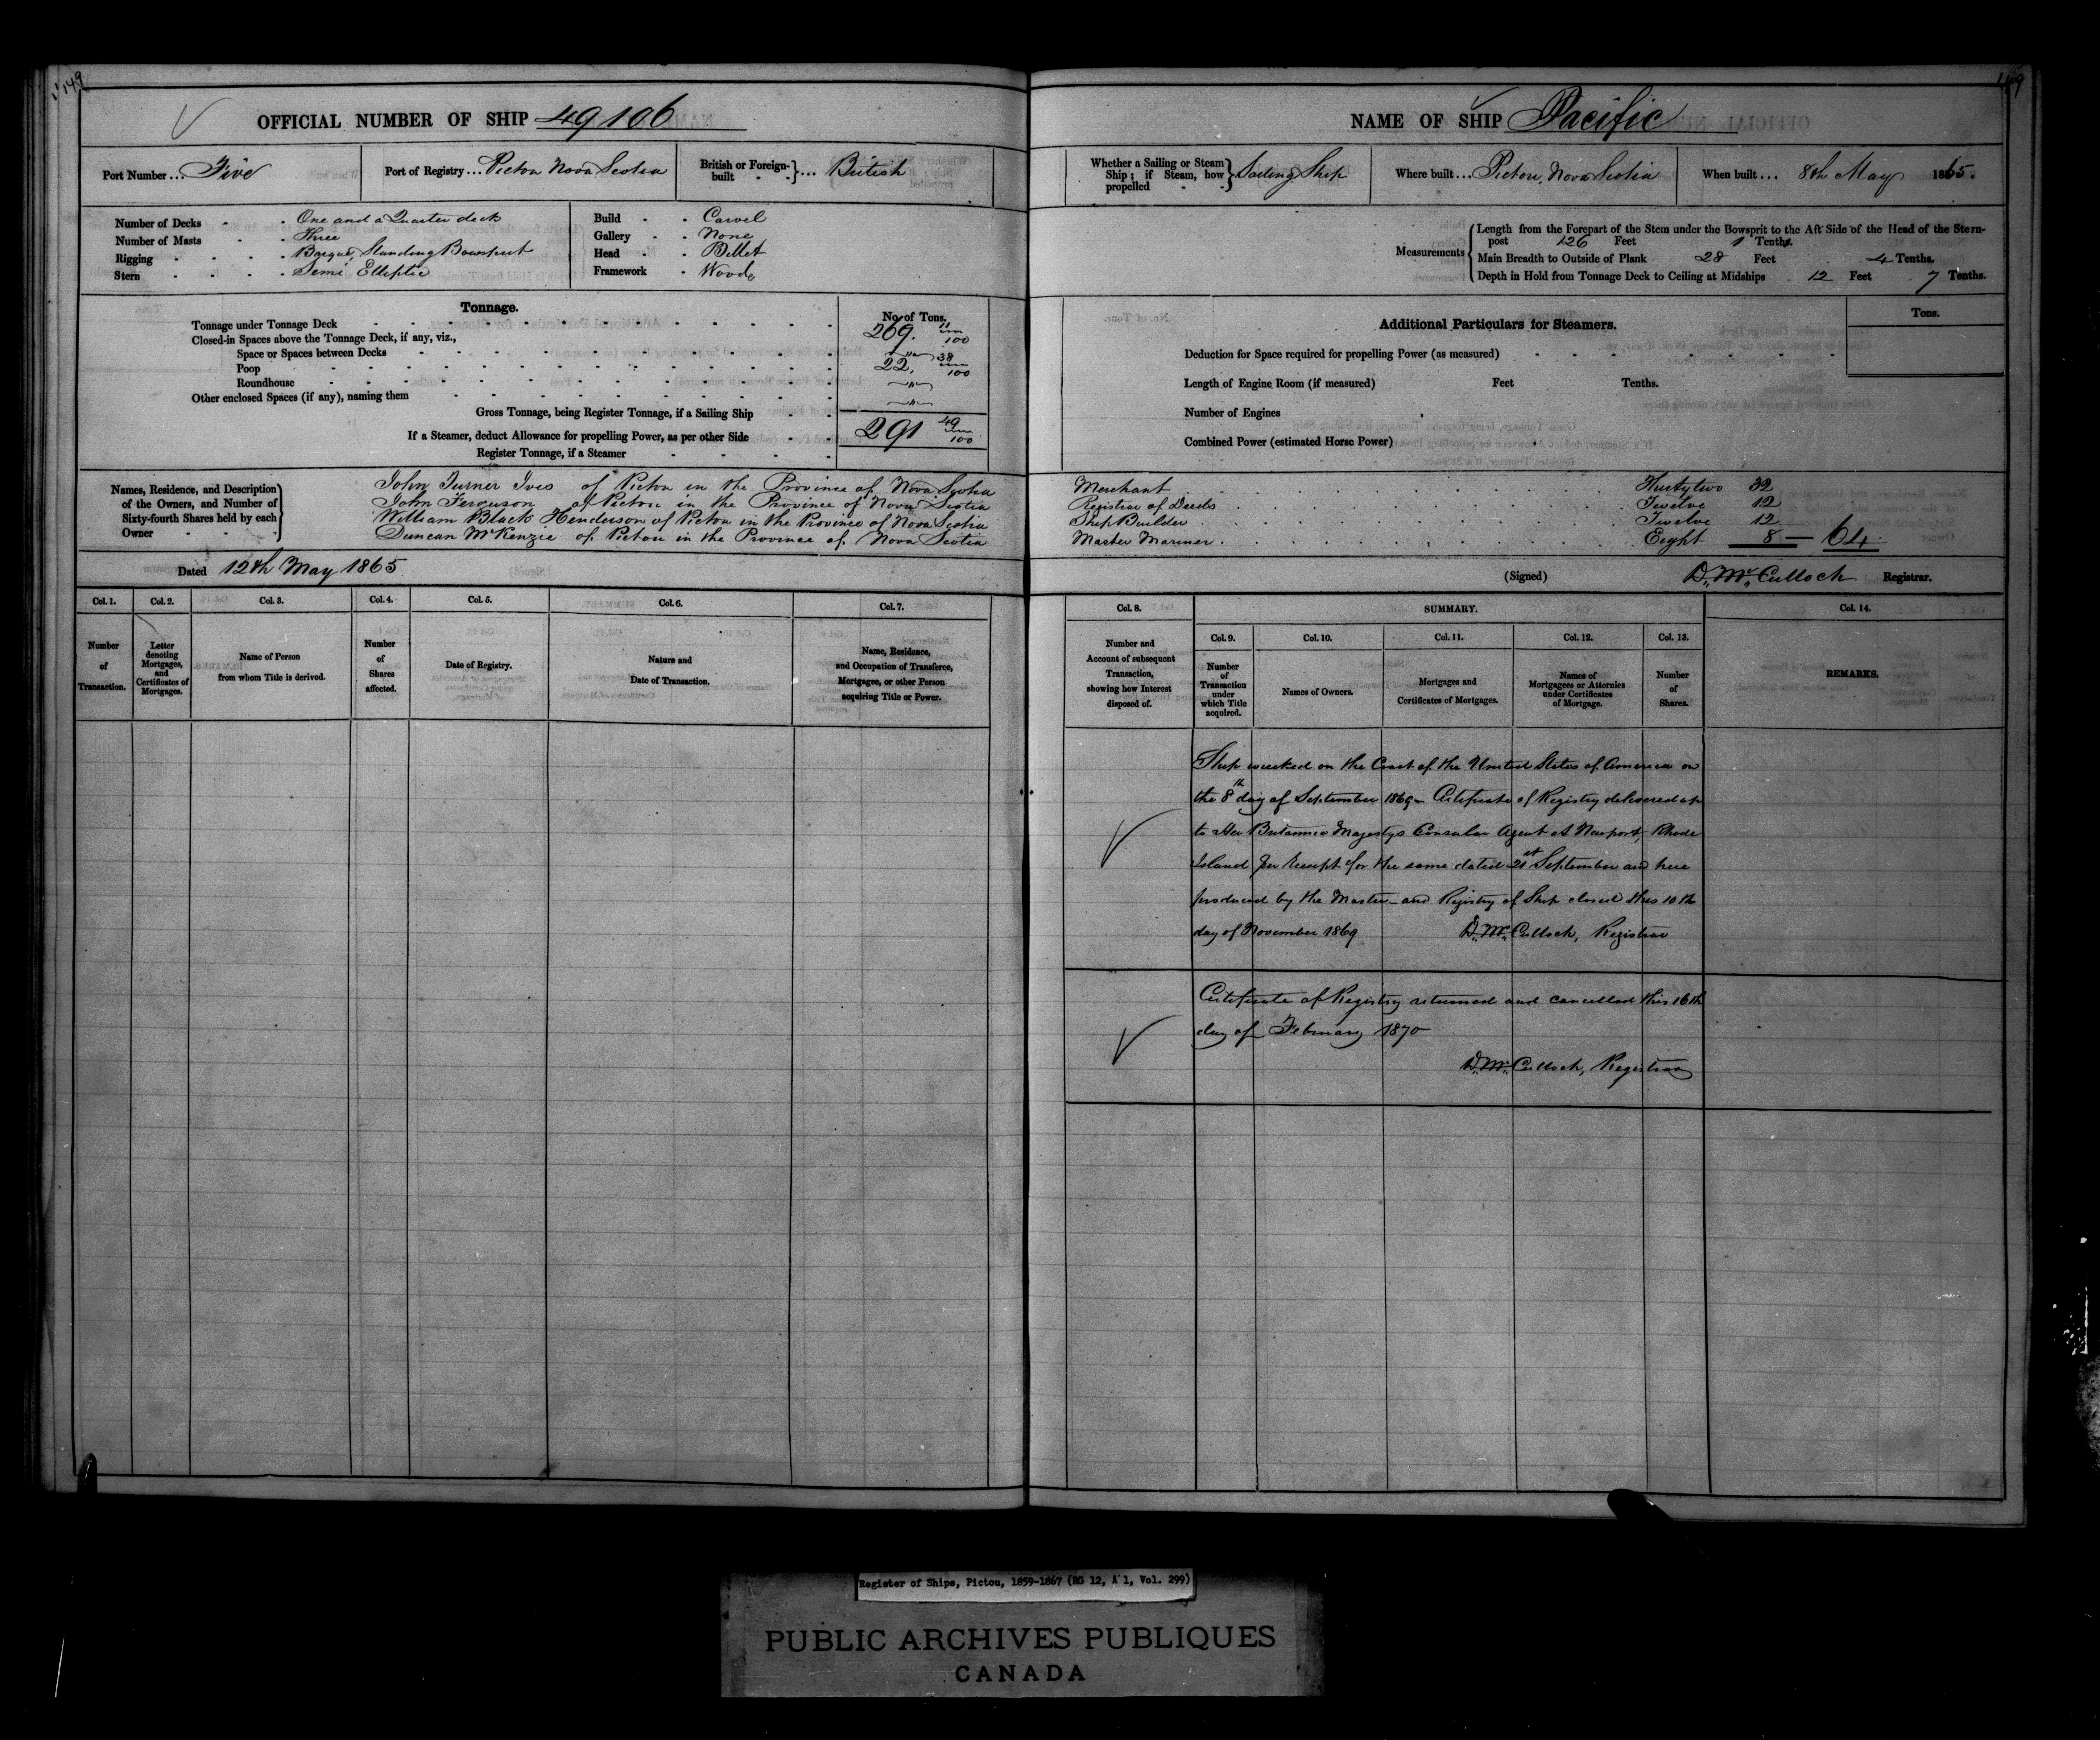 149
OFFICIAL NUMBER OF SHIP 49106
Port Number ... Five
Port of Registry ... Pictou Nova Scotia
British or Foreign-built } ... British
Number of Decks - - One and a Quarter deck
Number of Masts - - Three
Rigging - - - - Barque, Standing Bowsprit
Stern - - - - Semi Elliptic
Build - - Carvel
Gallery - - None
Head - - Billet
Framework - Wood
Tonnage.
No. of Tons.
Tonnage under Tonnage Deck 269. 11/100
Closed-in Spaces above the Tonnage Deck, if any, viz.,
Space or Spaces between Decks "
Poop 22. 38/100
Roundhouse "
Other enclosed Spaces (if any), naming them "
Gross Tonnage, being Register Tonnage, if a Sailing Ship 291 49/100
If a Steamer, deduct Allowance for propelling Power, as per other Side
Register Tonnage, if a Steamer
Names, Residence, and Description of the Owners, and Number of Sixty-fourth Shares held by each Owner
John Turner Ives of Pictou in the Province of Nova Scotia
John Ferguson of Pictou in the Province of Nova Scotia
William Black Henderson of Pictou in the Province of Nova Scotia
Duncan McKenzie of Pictou in the Province of Nova Scotia
Dated 12th May 1865
Col. 1. Col. 2. Col. 3. Col. 4. Col. 5. Col. 6. Col. 7.
Number of Transaction.
Letter denoting Mortgages, and Certificates of Mortgages.
Name of Person from whom Title is derived.
Number of Shares affected.
Date of Registry.
Nature and Date of Transaction.
Name, Residence, and Occupation of Transferee, Mortgagee, or other Person acquiring Title or Power.
149
NAME OF SHIP Pacific
Whether a Sailing or Steam Ship; if Steam, how propelled } Sailing Ship
Where built ... Pictou, Nova Scotia
When built ... 8th May 1865.
Measurements
Length from the Forepart of the Stem under the Bowsprit to the Aft Side of the Head of the Stern-
post 126 Feet 1 Tenths.
Main Breadth to Outside of Plank 28 Feet 4 Tenths.
Depth in Hold from Tonnage Deck to Ceiling at Midships 12 Feet 7 Tenths.
Additional Particulars for Steamers.
Tons.
Deduction for Space required for propelling Power (as measured)
Length of Engine Room (if measured) Feet Tenths.
Number of Engines
Combined Power (estimated Horse Power)
Merchant Thirty two 32
Registrar of Deeds Twelve 12
Ship Builder Twelve 12
Master Mariner Eight 8 — 64.
(Signed) D. Mc Culloch Registrar.
Col. 8. SUMMARY. Col. 14.
Col. 9. Col. 10. Col. 11. Col. 12. Col. 13.
Number and Account of subsequent Transaction, showing how Interest disposed of.
Number of Transaction under which Title acquired.
Names of Owners.
Mortgages and Certificates of Mortgages.
Names of Mortgagees or Attornies under Certificates of Mortgage.
Number of Shares.
REMARKS.
Ship wrecked on the Coast of the United States of America on
the 8th day of September 1869 – Certificate of Registry delivered up
to Her Britannic Majestys Consular Agent at Newport, Rhode
Island per Receipt for the same dated 21st September and here
produced by the Master – and Registry of Ship closed this 10th
day of November 1869 D. Mc Culloch, Registrar
Certificate of Registry returned and cancelled this 16th
day of February 1870
D. Mc Culloch, Registrar
Register of Ships, Pictou, 1859-1867 (RG 12, A 1, Vol. 299)
PUBLIC ARCHIVES PUBLIQUES
CANADA